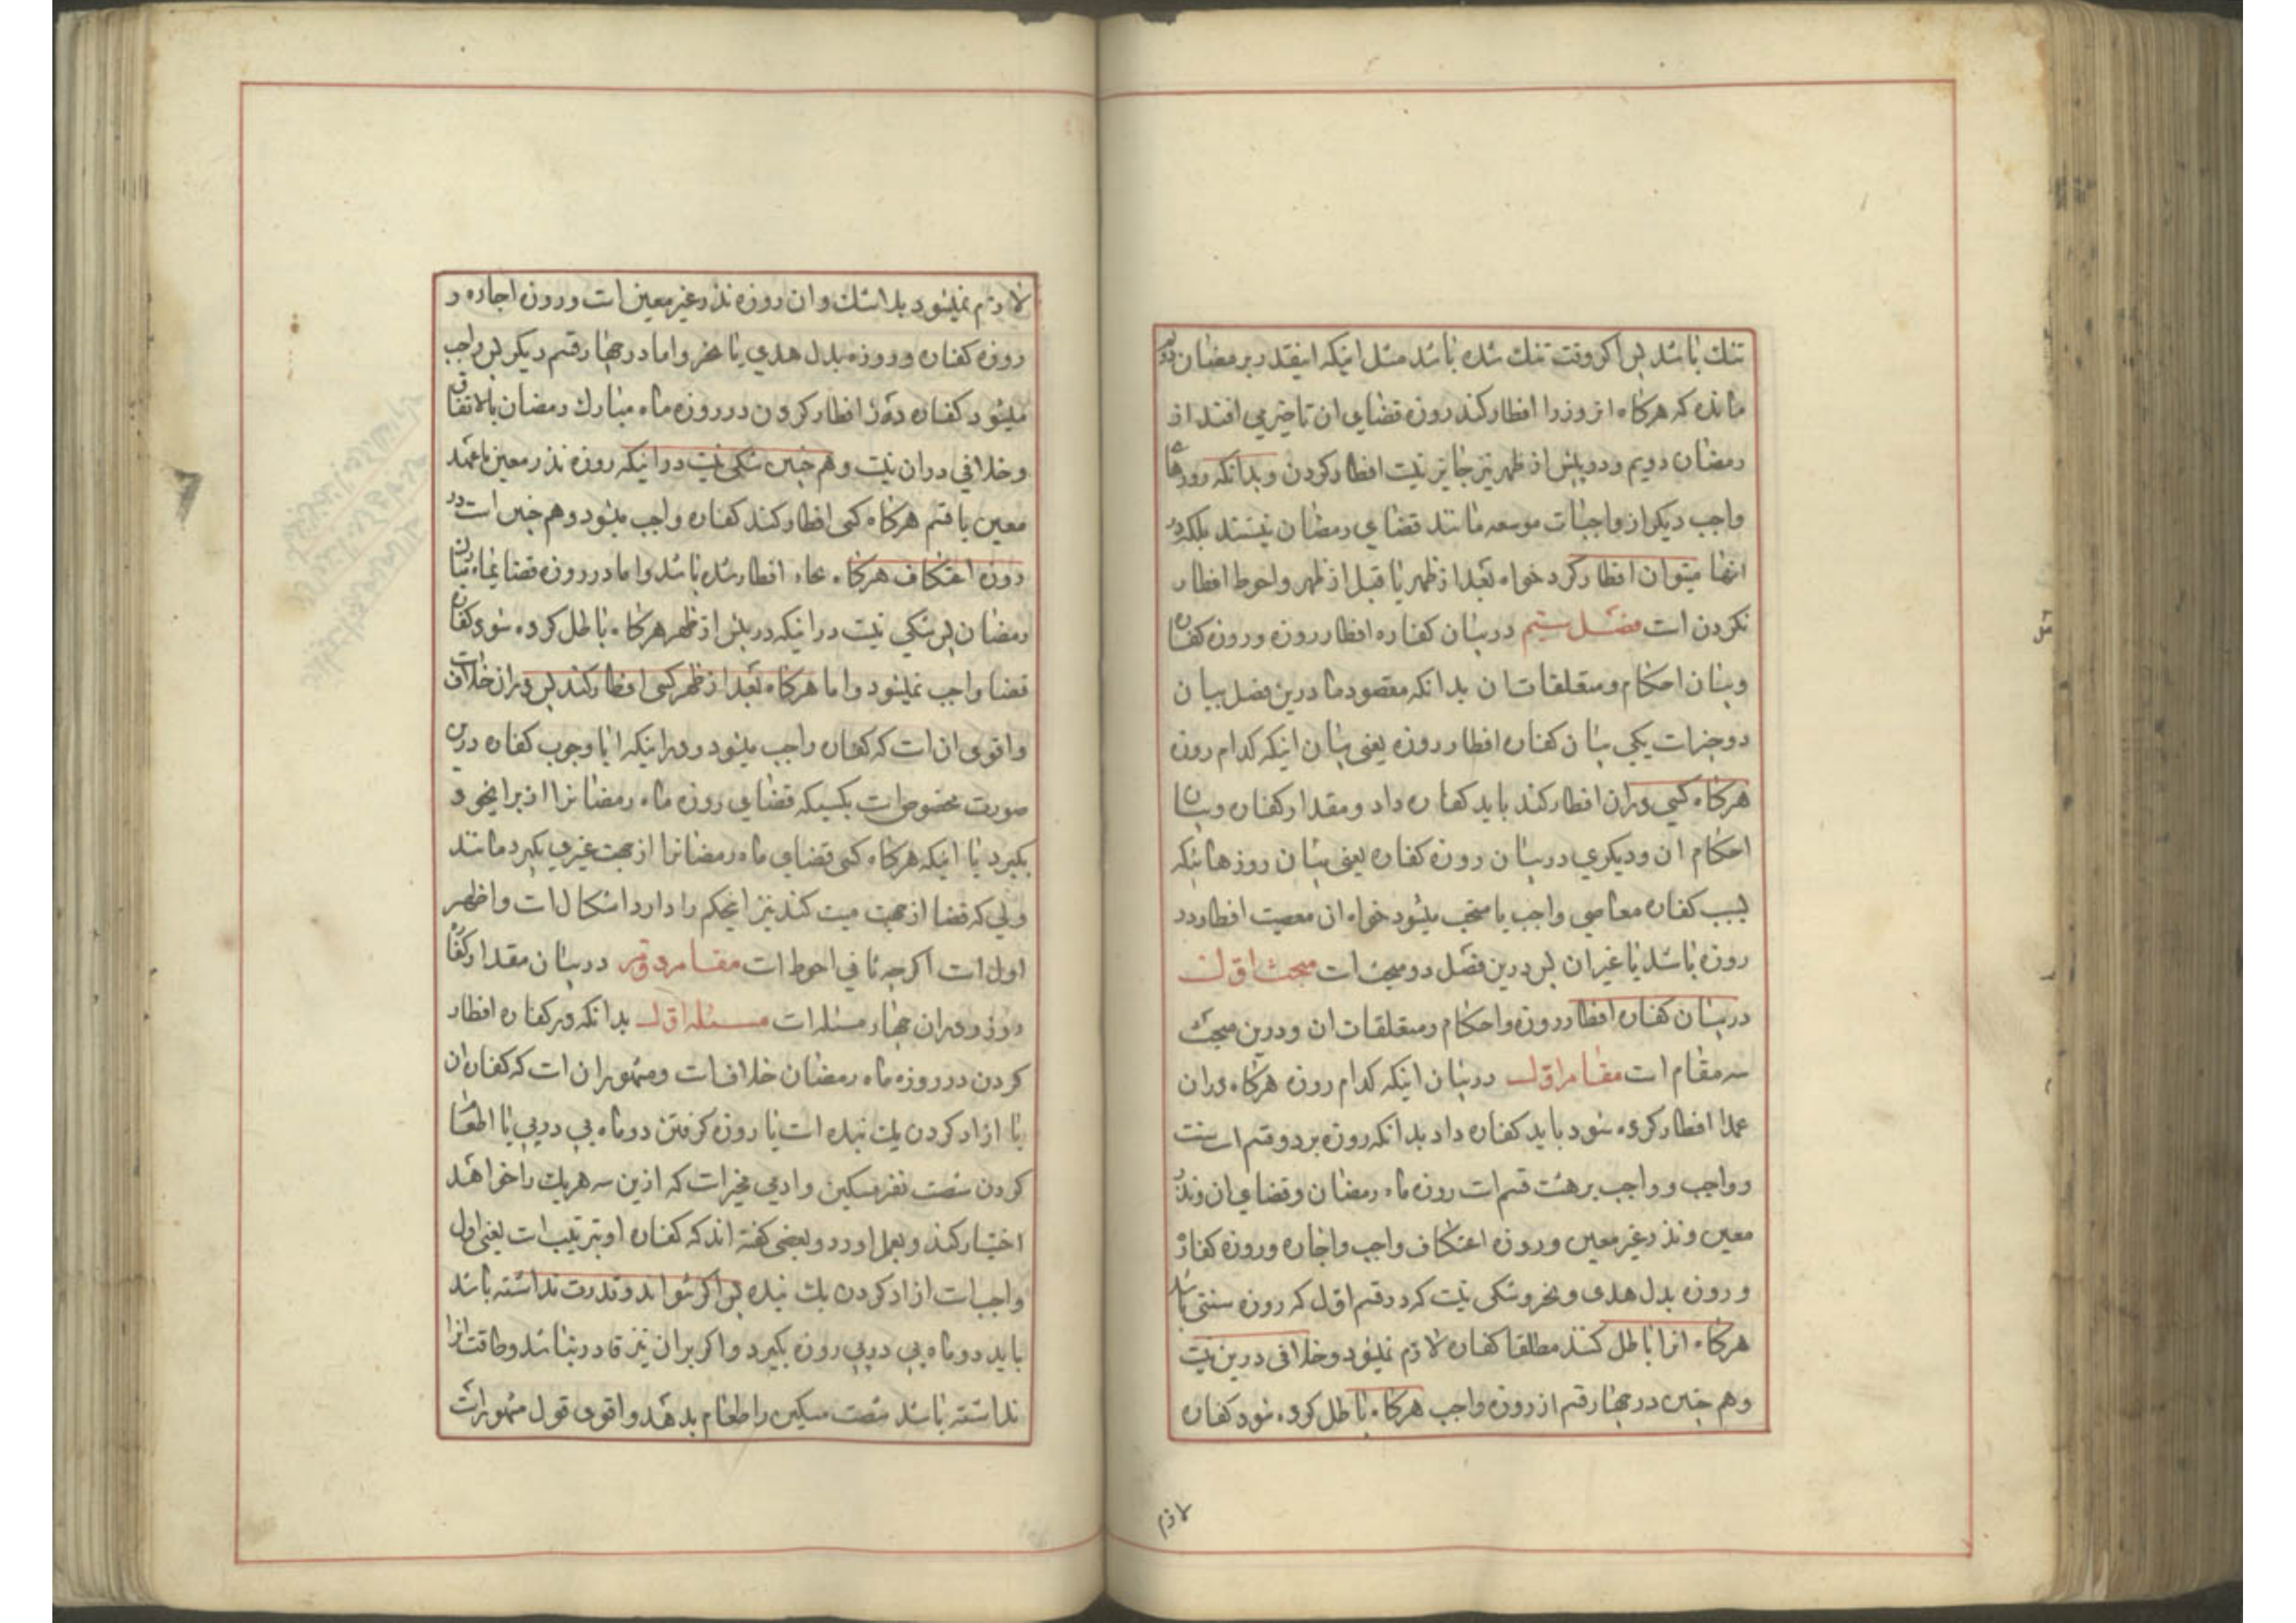 تنك باشد پس اكر وقت تنك شده باشد مثل اينكه اينقدر بر مضان دويم
مانده كه هركاه انروز را افطار كند روزه قضاي ان تاخير مي افتد از
رمضان دويم ودر پيش از ظهر نيز جايز نيست افطار كردن وبدانكه روزهاء
واجب ديكر از واجبات موسعه مانند قضاي رمضان نيستند بلكه در
انها ميتوان افطار كرد خواه بعد از ظهر يا قبل از ظهر واحوط افطار
نكردن است فصل ستيم در بيان كفاره افطار روزه وروزه كفاره
وبيان احكام ومتعلقات ان بدانكه مقصود ما درين فصل بيان
دو چيز است يكي بيان كفاره افطار روزه يعني بيان اينكه كدام روزه
هركاه كسي دران افطار كند بايد كفاره داد ومقدار كفاره وبيان
احكام ان وديكري در بيان روزه كفاره يعني بيان روزهائيكه
بسبب كفاره معاصي واجب يا مستحب ميشود خواه ان معصيت افطار در
روزه باشد يا غير ان پس درين فصل دو مبحث است مبحث اول
در بيان كفاره افطار روزه واحكام ومتعلقات ان ودرين مبحث
سه مقام است مقام اول در بيان اينكه كدام روزه هركاه دران
عمدا افطار كرده شود بايد كفاره داد بدانكه روزه بر دو قسم است سنت
وواجب وواجب بر هشت قسم است روزه ماه رمضان وقضاي ان ونذر
معين ونذر غير معين وروزه اعتكاف واجب واجاره وروزه كفاره
وروزه بدل هدي ونحر وشكي نيست كه در قسم اول كه روزه سنتي باشد
هركاه انرا باطل كند مطلقا كفاره لازم نميشود وخلافي درين نيست
وهم چنين در چهار قسم از روزه واجب هركاه باطل كرده شود كفاره
لازم
لازم نميشود بلا شك وان روزه نذر غير معين است وروزه اجاره و
روزه كفاره وروزه بدل هدي يا نحر واما در چهار قسم ديكر پس واجب
ميشود كفاره در افطار كردن در روزه ماه مبارك رمضان بالاتفاق
وخلافي دران نيست وهم چنين شكي نيست در اينكه روزه نذر معين يا عهد
معين يا قسم هركاه كسي افطار كند كفاره واجب ميشود وهم چنين است در
روزه اعتكاف هركاه افطار شده باشد واما در روزه قضا
رمضان پس شكي نيست در اينكه در پيش از ظهر هركاه باطل كرده شود كفاره
قضا واجب نميشود واما هركاه بعد از ظهر كسي افطار كند پس دران خلاف است
واقوي ان است كه كفاره واجب ميشود ودر اينكه ايا وجوب كفاره درين
صورت مخصوص است بكسيكه قضاي روزه ماه رمضانرا از براي خود
بكيرد يا اينكه هركاه كسي قضاي ماه رمضانرا از جهت غيري بكيرد مانند
ولي كه قضا از جهت ميت كند نيز اينحكم را دارد اشكال است واظهر
اول است اكرچه ثاني احوط است مقام دويم در بيان مقدار كفاره
روزه ودران چهار مسئله است مسئله اول بدانكه در كفاره افطار
كردن در روزه ماه رمضان خلاف است ومشهور ان است كه كفاره ان
يا ازاد كردن يك بنده است يا روزه كرفتن دو ماه پي در پي يا اطعام
كردن شصت نفر مسكين وادمي مخير است كه ازين سه هر يك را خواهد
اختيار كند وبعمل اورد وبعضي كفته اند كه كفاره او بترتيب است يعني اول
واجب است ازاد كردن يك بنده پس اكر نتواند وقدرت نداشته باشد
بايد دو ماه پي در پي روزه بكيرد واكر بران نيز قادر نباشد وطاقت انرا
نداشته باشد شصت مسكين را طعام بدهد واقوي قول مشهور است